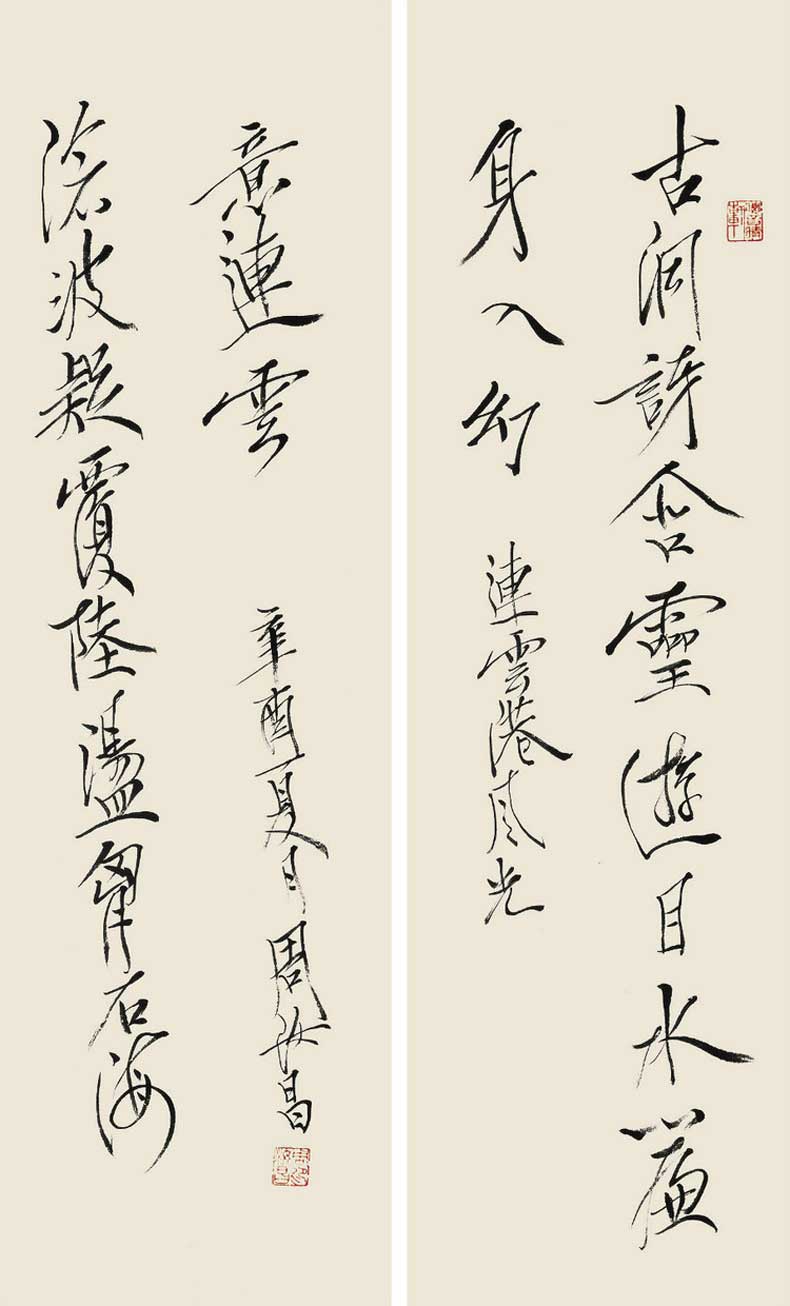 古洞詩含靈遊目水簾
身入幻
連雲港風光
滄波疑覆陸盪胷石海
意連雲
辛酉夏月周汝昌